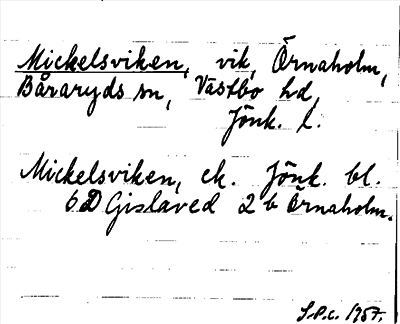 Mickelsviken, vik, Örnaholm,
Båraryds sn, Västbo hd,
Jönk. l.
Mickelsviken, ek. Jönk. bl.
6D Gislaved 2b Örnaholm.
S.P.c. 1957.